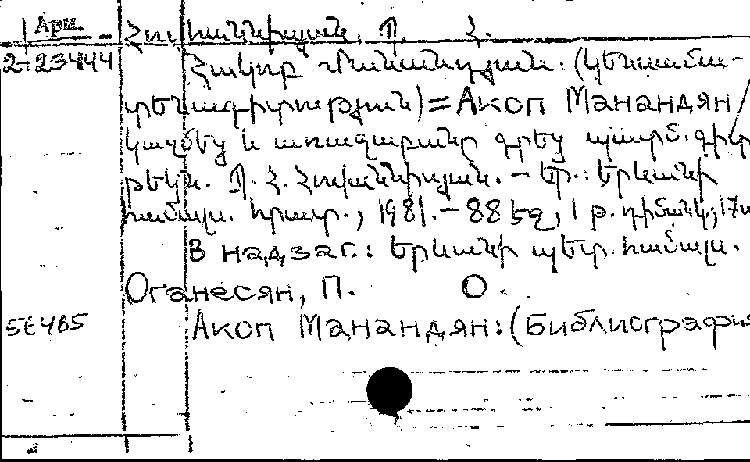 Арм.
Հովհաննիսյան, Պ. Հ.
2-23444 Հակոբ Մանանդյան: (Կենսամա-
տենագիտություն) = Акоп Манандян /
կազմեց և առաջաբանը գրեց պատմ. գիտ
թեկն. Պ. Հ. Հովհաննիսյան. – Եր.: Երևանի
համալս. հրատ., 1981. – 88 էջ, 1 թ. դիմանկ.; 17
В надзаг.: Երևանի պետ. համալս.
Оганесян, П. О.
5Е465 Акоп Манандян: (Библиография